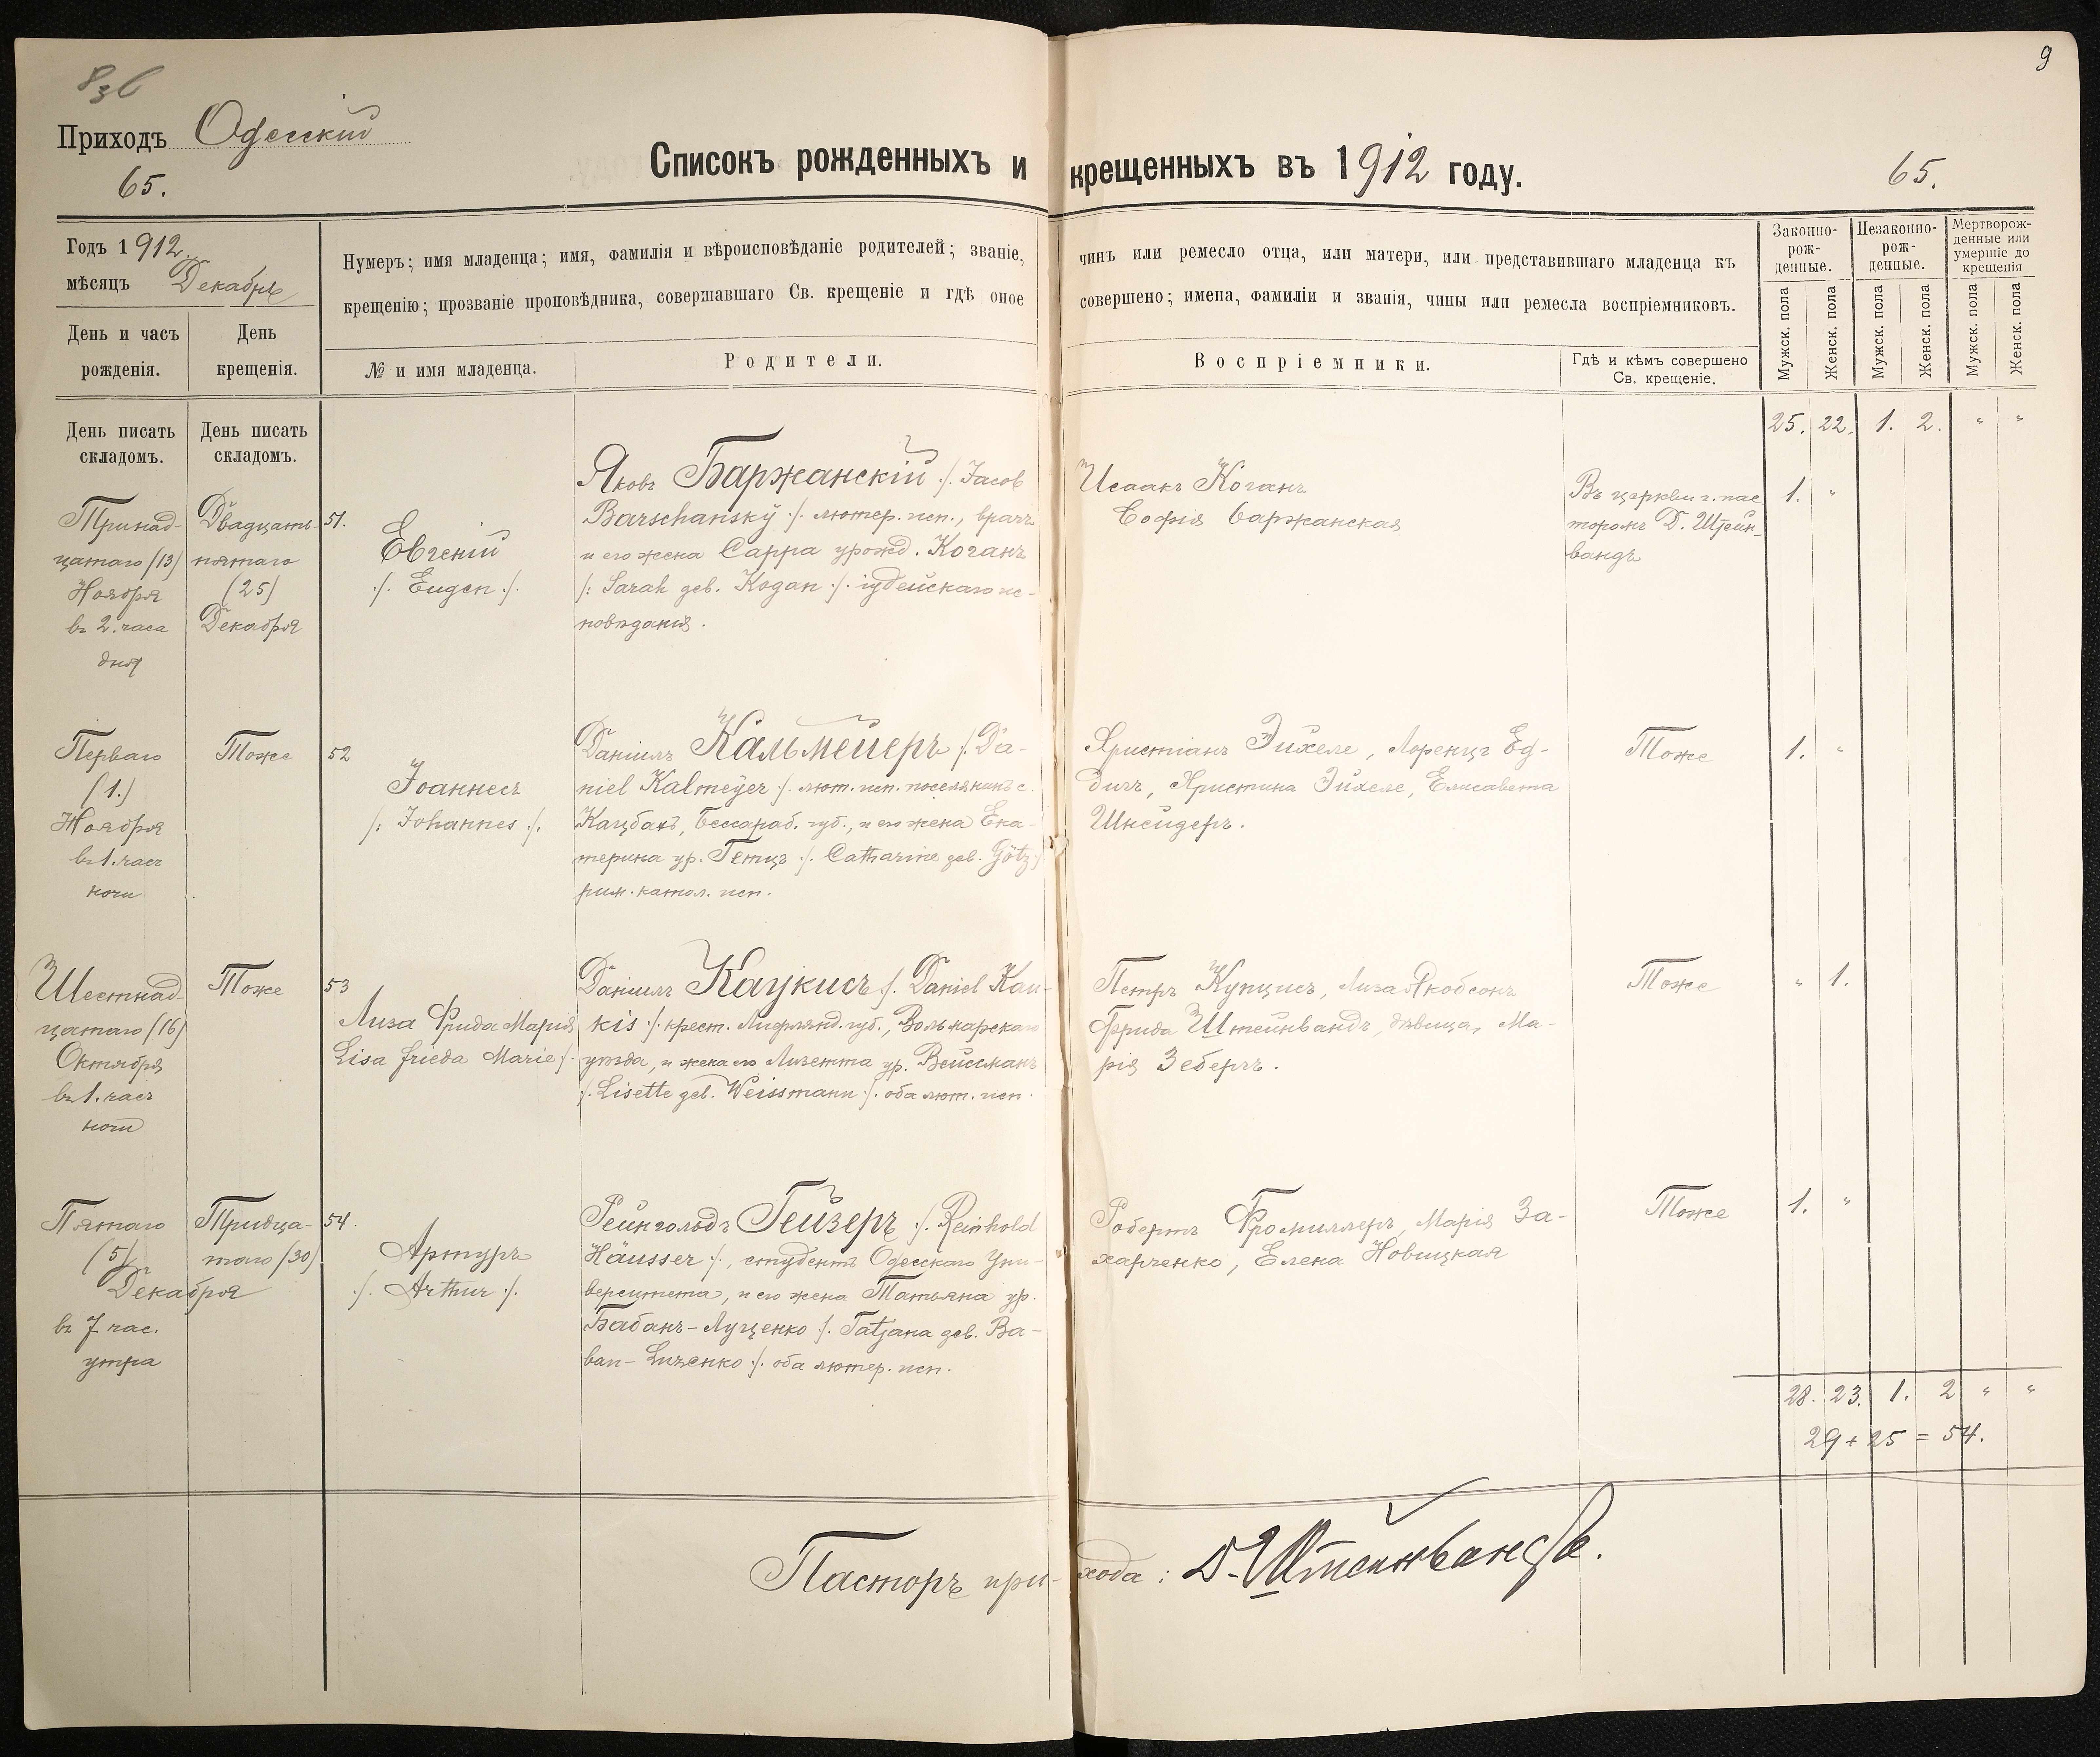 9
Приходъ Одесскій
65.
Списокъ рожденныхъ и крещенныхъ въ 1912 году.
65.
Годъ 1912.
мѣсяцъ Декабрь
День и часъ рожденія.
День крещенія.
Нумеръ; имя младенца; имя, фамилія и вѣроисповѣданіе родителей; званіе, чинъ или ремесло отца, или матери, или представившаго младенца къ
крещенію; прозваніе проповѣдника, совершавшаго Св. крещеніе и гдѣ оное совершено; имена, фамиліи и званія, чины или ремесла воспріемниковъ.
№ и имя младенца.
Родители.
Воспріемники.
Гдѣ и кѣмъ совершено
Св. крещеніе.
Законно-
рож-
денные.
Незаконно-
рож-
денные.
Мертворож-
денные или
умершіе до
крещенія
Мужск. пола
Женск. пола
Мужск. пола
Женск. пола
Мужск. пола
Женск. пола
День писать
складомъ.
День писать
складомъ.
25. 22. 1. 2. " "
Тринад-
цатаго (13)
Ноября
въ 2. часа
дня
Двадцать-
пятаго
(25)
Декабря
51.
Евгеній
/. Eugen ./.
Яковъ Баржанскій ./. Jacob
Barschanský ./. лютер. исп., врачъ
и его жена Сарра урожд. Коганъ
/: Sarah geb. Kogan ./. іудейскаго ис-
повѣданія.
Исаакъ Коганъ
Софія Баржанская
Въ церкви г. пас-
торомъ Д. Штейн-
вандъ
1. "
Перваго
(1.)
Ноября
въ 1. часъ
ночи
Тоже
52
Іоаннесъ
/: Johannes ./.
Даніилъ Кальмейеръ /. Da-
niel Kalmeÿer ./. лют. исп. поселянинъ с.
Кацбахъ, Бессараб. губ., и его жена Ека-
терина ур. Гетцъ ./. Catharine geb. Götz ./.
рим. катол. исп.
Христіанъ Эйхеле, Лоренцъ Ед-
Христина Эйхеле, Елисавета
Шнейдеръ.
Тоже
1. "
Шестнад-
цатаго (16)
Октября
въ 1. часъ
ночи
Тоже
53
Лиза Фрида Марія
Lisa Frieda Marie ./.
Даніилъ Каукисъ ./. Daniel Kau-
kis ./. крест. Лифлянд. губ., Вольмарскаго
уѣзда, и жена его Лизетта ур. Вейсманъ
/. Lisette geb. Weissmann ./. оба лют. исп.
Петръ Купцисъ, Лиза Якобсонъ
Фрида Штейнвандъ, дѣвица, Ма-
рія Зебергъ.
Тоже
" 1.
Пятаго
(5)
Декабря
въ 7 час.
утра
Тридца-
таго (30)
54.
Артуръ
/. Arthur ./.
Рейнгольдъ Гейзеръ ./. Reinhold
Häusser ./., студентъ Одесскаго Уни-
верситета, и его жена Татьяна ур.
Бабанъ-Луценко ./. Tatjana geb. Ba-
ban-Luzenko ./. оба лютер. исп.
Робертъ Фромиллеръ, Марія За-
харченко, Елена Новицкая
Тоже
1. "
28. 23. 1. 2 " "
29 + 25 = 54.
Пасторъ прихода: Д. Штейнвандъ.